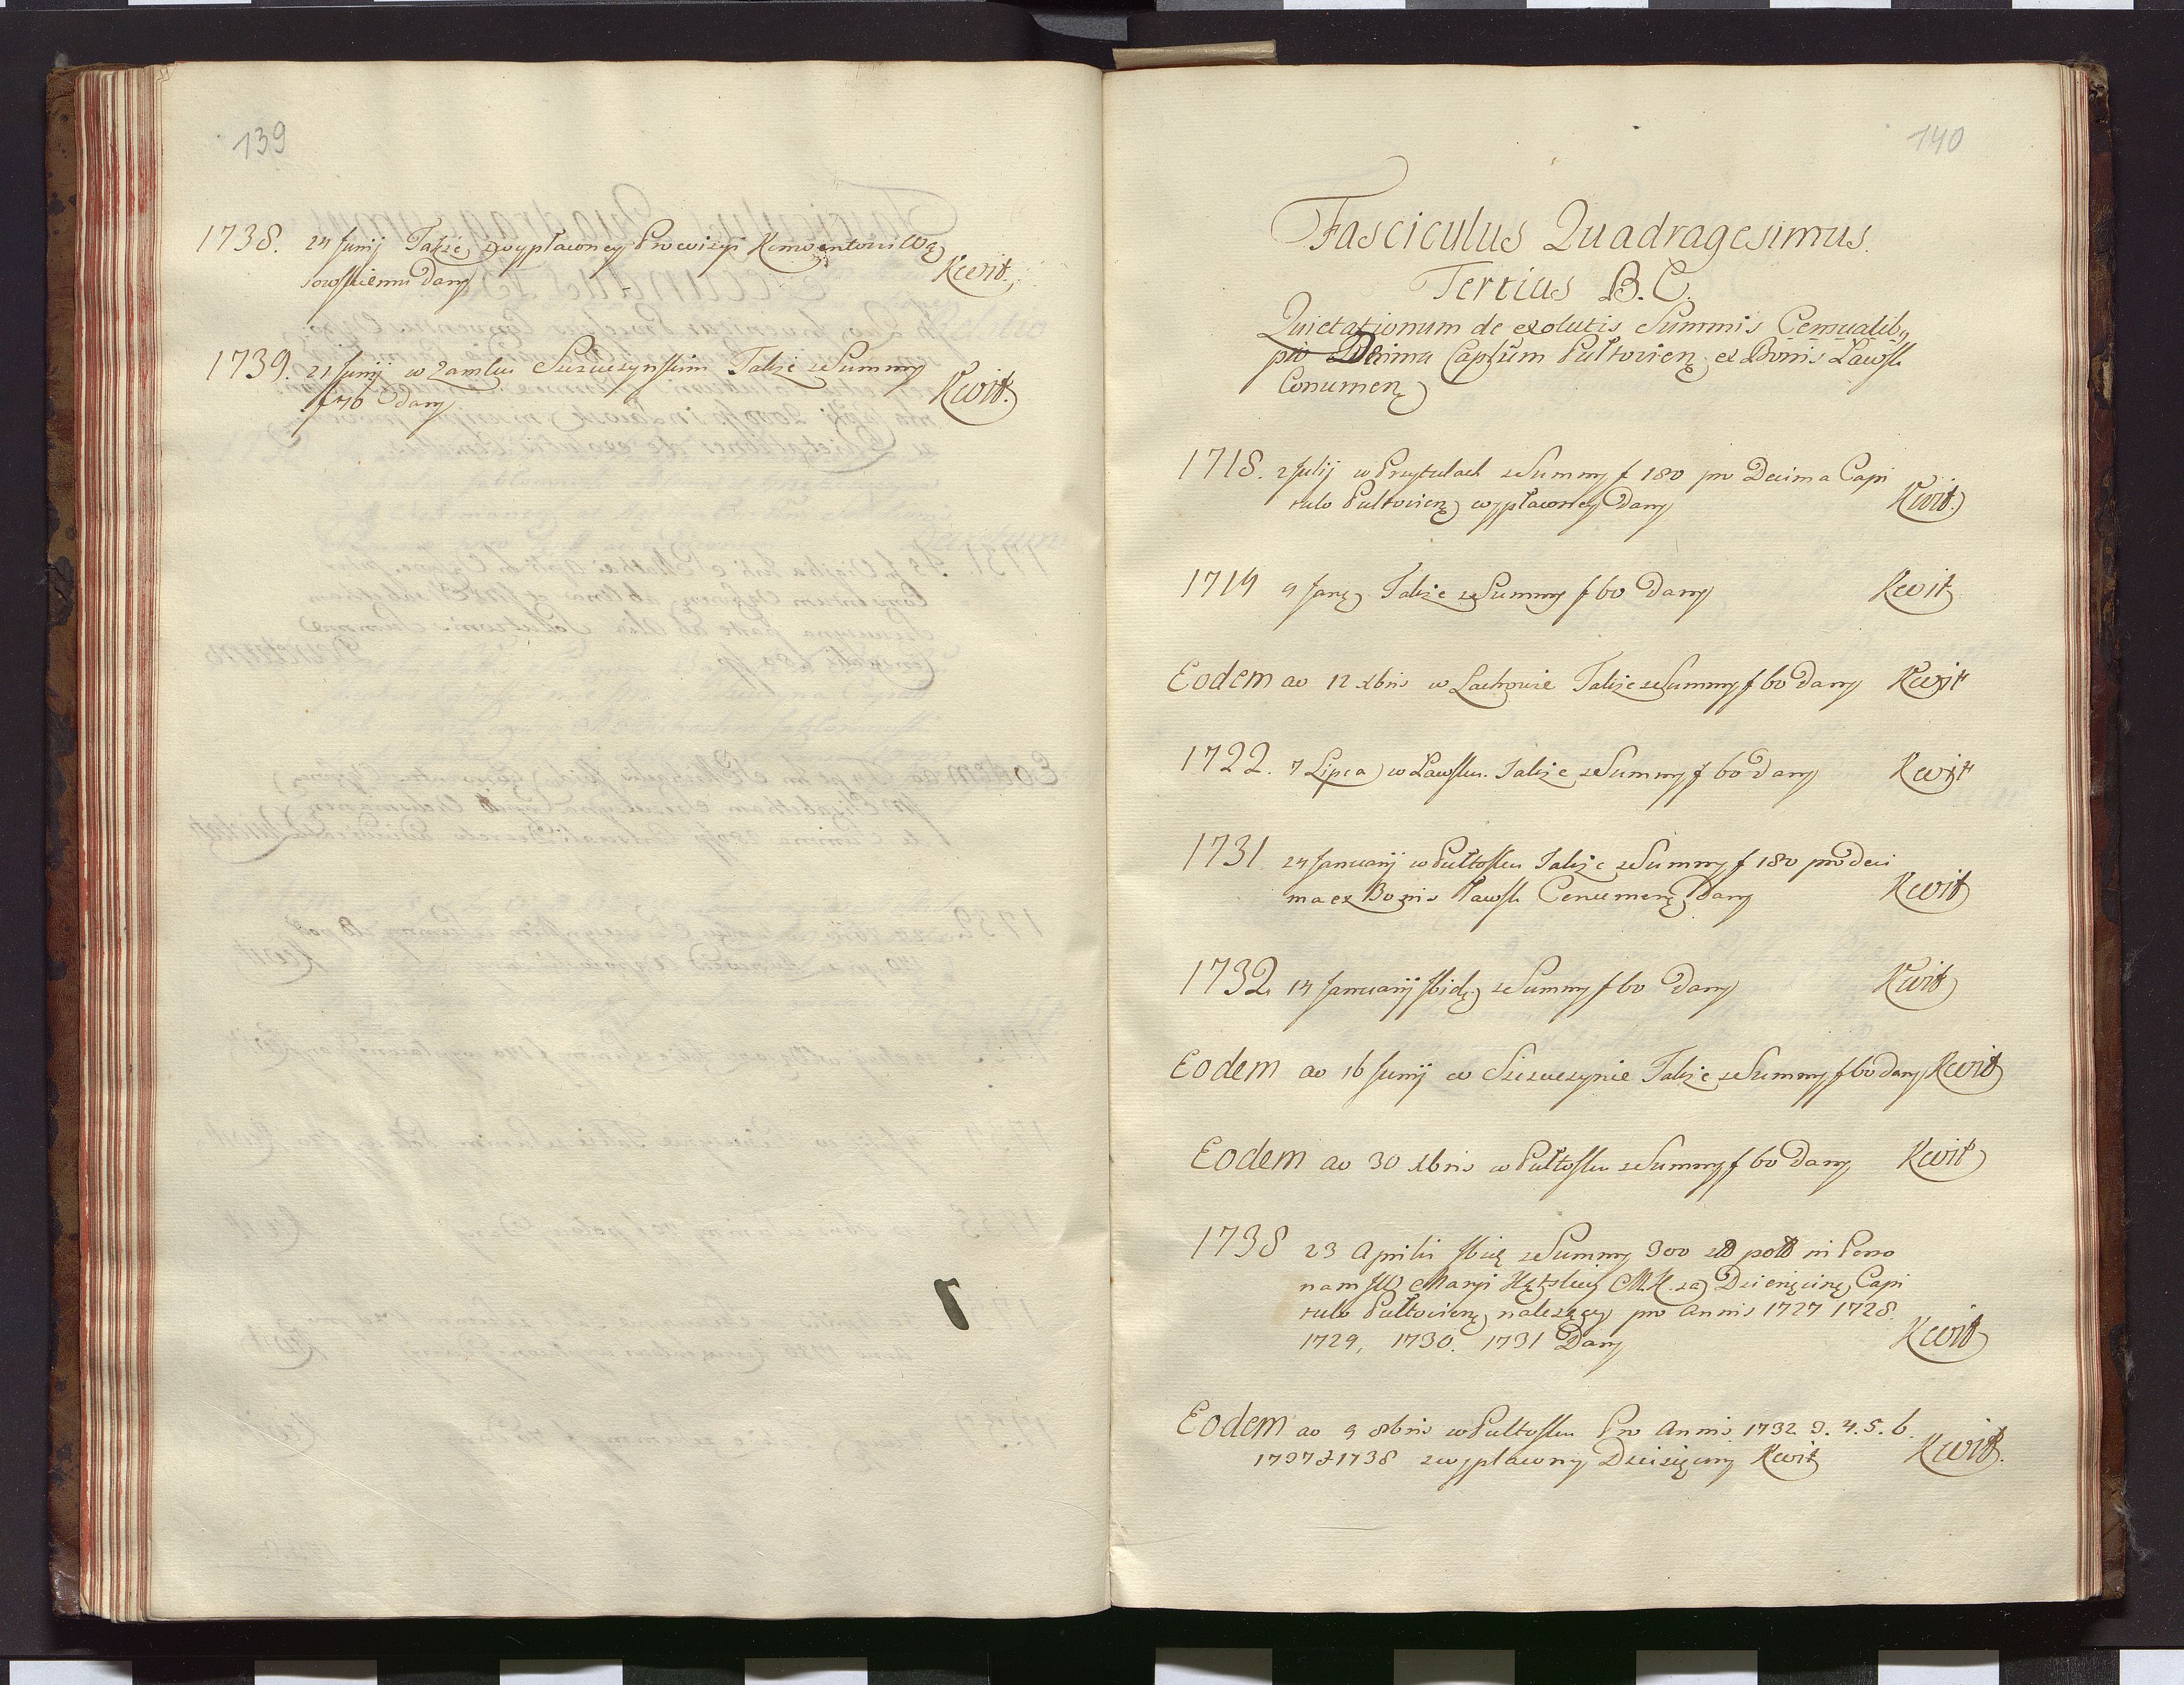 139
1738. 24 Junij Takze z wypłaconey Prowizyi Konwentowi Wą
sowskiemu dany Kwit.
1739. 21 Junij w Zamku Szczuczynskim Takze z Summy
f 70 dany Kwit.
140
Fasciculus Quadragesimus.
Tertius B.C.
Quietationum de exolutis Summis Censualibꝰ
pro Decima Capitulum Pułtovien, ex Bonis Ławsk
Conumen
1718. 2 Julij w Przytulach z Summy f 180 pro Decima Capi
tulo Pultovien wypłaconey Dany Kwit.
1719 9 Takze z Summy f 60 Dany Kwit
Eodem ao 12 xbris w Lachowie Takze z Summy f 60 Dany Kwit
1722. 7 Lipca w Ławsku. Takze z Summy f 60 dany Kwit
1731. 24 Januarij w Pułtosku Takze z Summy f 180 pro deci
ma ex Bonis Ławsk Dany Kwit
1732. 14 Januarij Ibid. z Summy f 60 Dany Kwit
Eodem ao 16 Junij w Szczuczynie Takze z Summy f 60 dany Kwit
Eodem ao 30 xbris w Pułtosku z Summy f 60 Dany Kwit
1738 23 Aprilis z Summy 300 zł pol in Perso
nam Maryi M.K. za Dziesięcinę Capi
tulo Pułtovien nalezący pro Annis 1727 1728.
1729, 1730. 1731 Dany Kwit
Eodem ao 9 8bris w Pultosku Pro Annis 1732. 3. 4. 5. 6.
1737 & 1738 z wypłacony Dziesięciny Kwit Kwit.